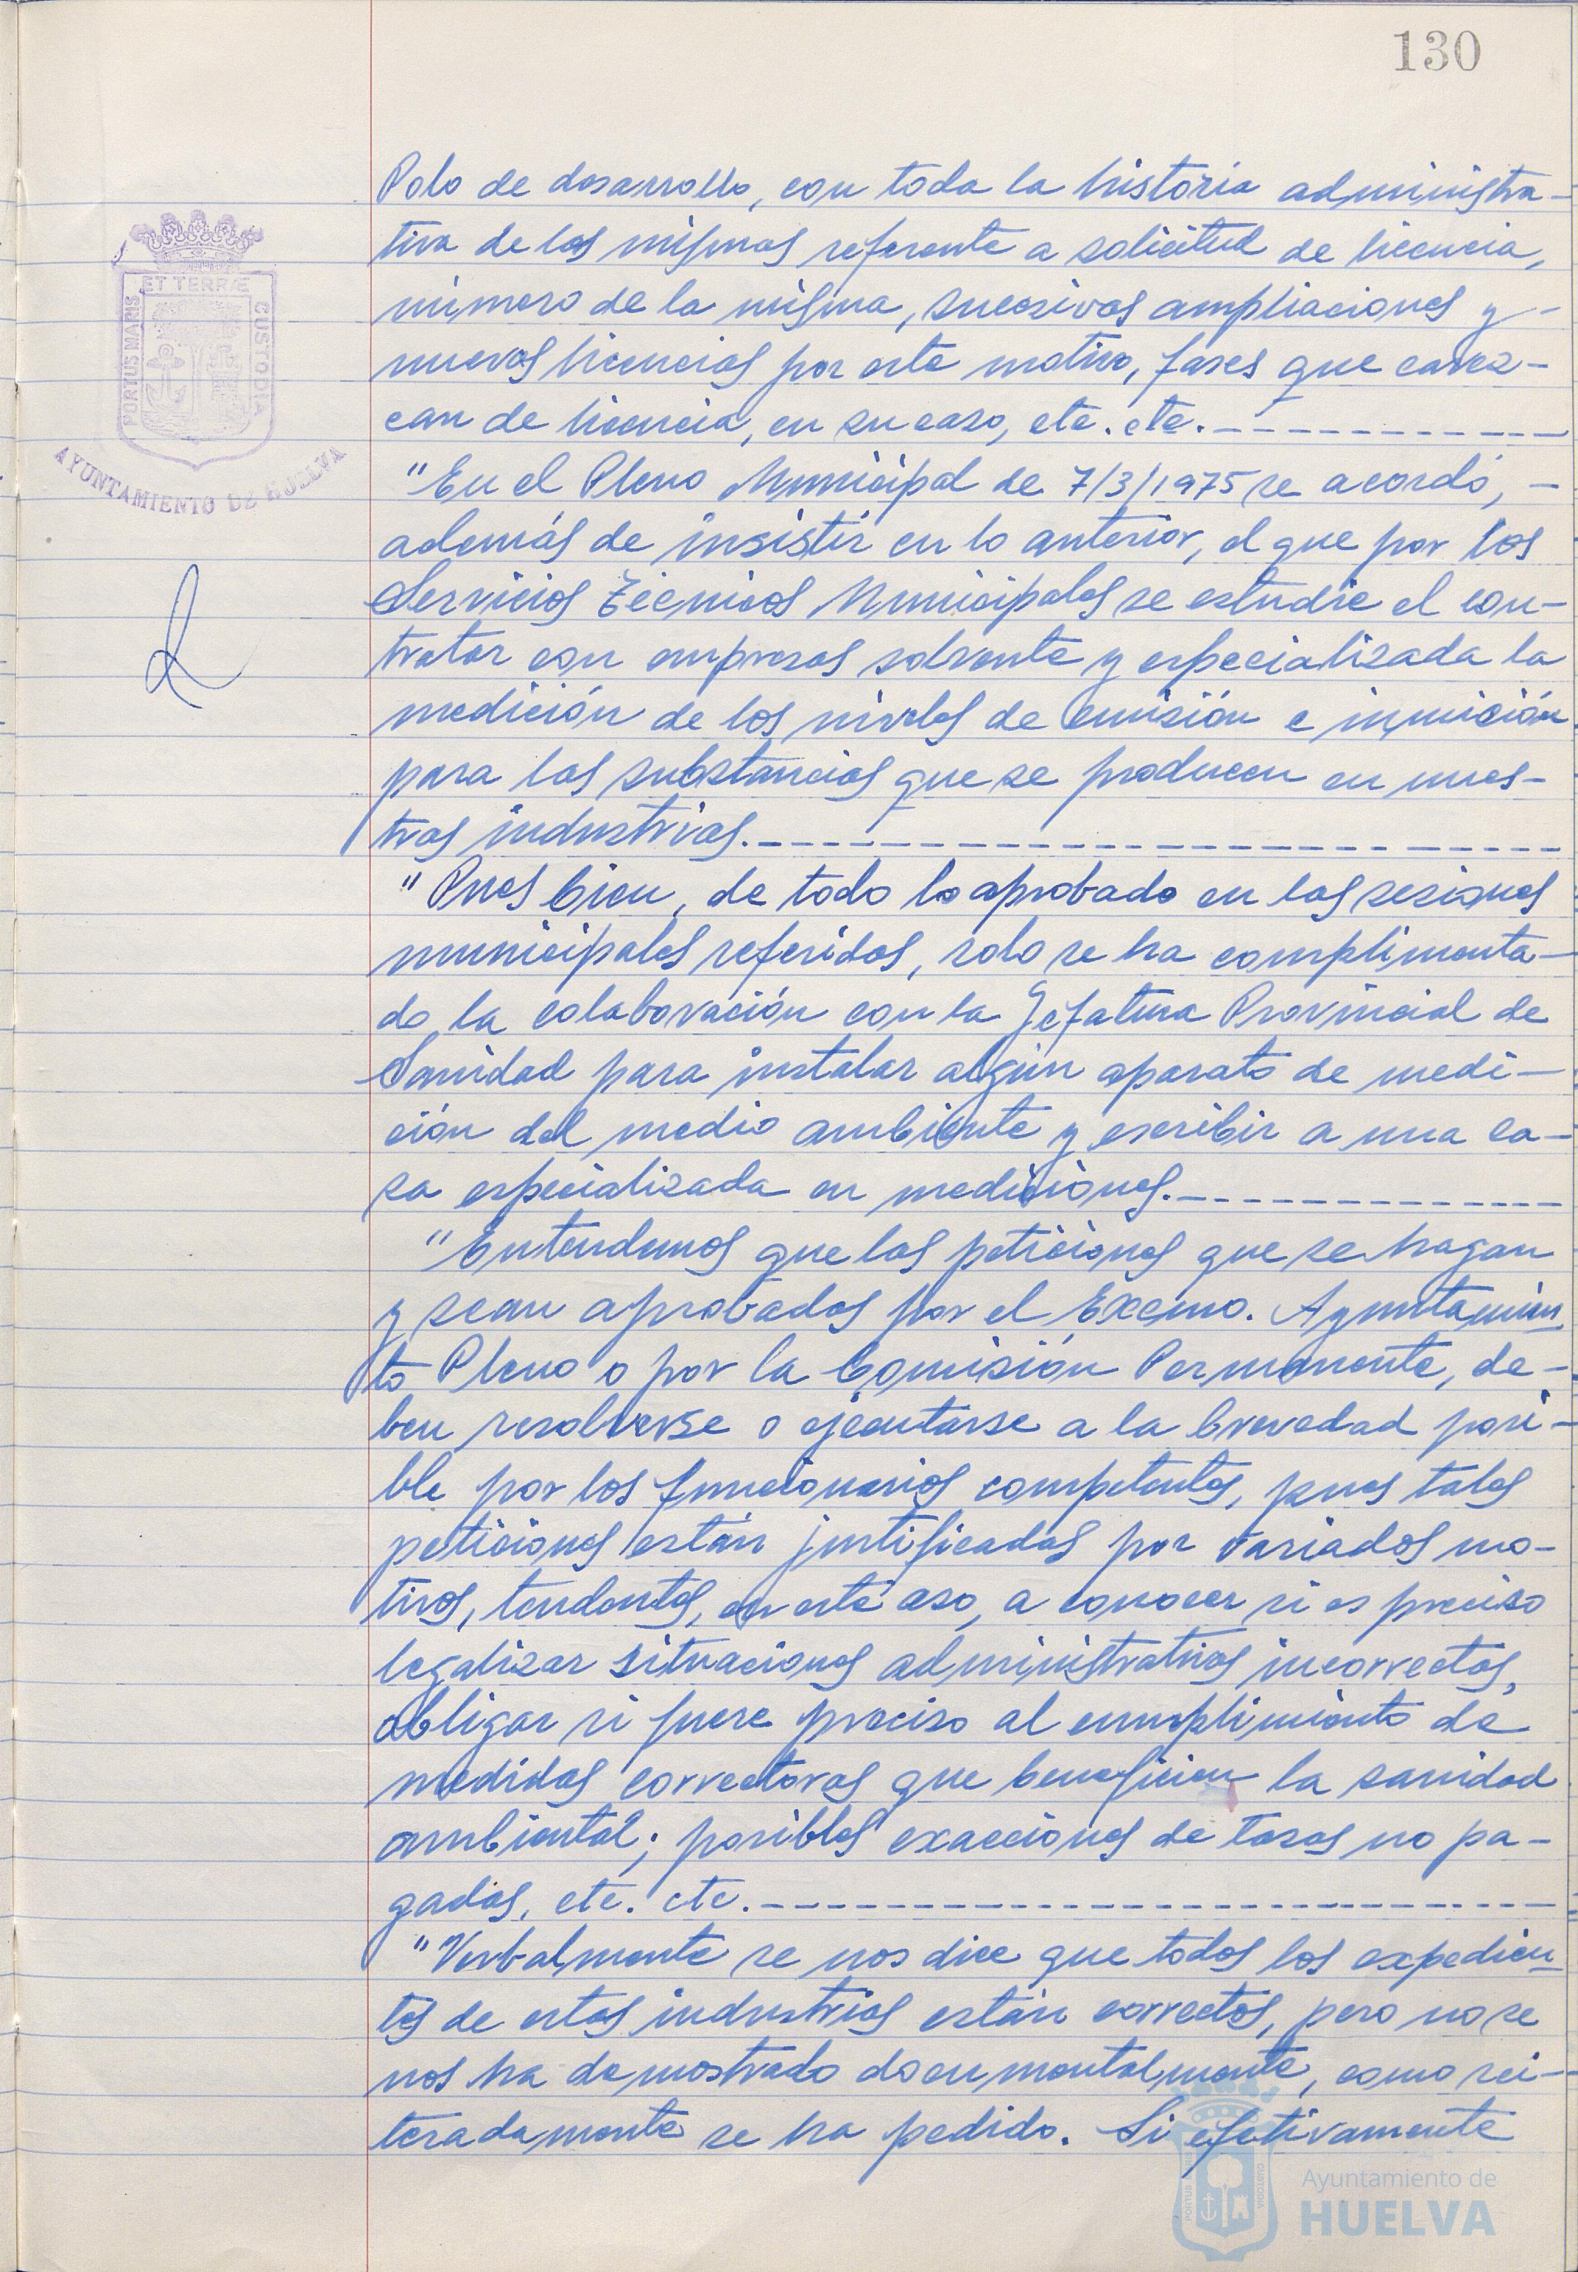 130
Polo de desarrollo, con toda la historia administra-
tiva de las mismas referente a solicitud de licencia,
número de la misma, sucesivas ampliaciones y -
nuevas licencias por este motivo, fases que carez-
can de licencia, en su caso, etc. etc.------------
"En el Pleno Municipal de 7/3/1975 se acordó, -
además de insistir en lo anterior, el que por los
Servicios Técnicos Municipales se estudie el con-
tratar con empresas solvente y especializada la
medición de los niveles de emisión e inmisión
para las substancias que se producen en nues-
tras industrias.--------------------
"Pues bien, de todo lo aprobado en las sesiones
municipales referidas, solo se ha complimenta-
do la colaboración con la Jefatura Provincial de
Sanidad para instalar algún aparato de medi-
ción del medio ambiente y escribir a una ca-
sa especializada en mediciones.--------------
"Entendemos que las peticiones que se hagan
y sean aprobadas por el Excmo. Ayuntamien
to Pleno o por la Comisión Permanente, de-
ben resolverse o ejecutarse a la brevedad posi-
ble por los funcionarios competentes, pues tales
peticiones están justificadas por variados mo-
tivos, tendentes, en este aso, a conocer si es preciso
legalizar situaciones administrativas incorrectas,
obligar si fuere preciso al cumplimiento de
medidas correctoras que beneficien la sanidad
ambiental; posibles exacciones de tasas no pa-
gadas, etc. etc.--------------------------
"Verbalmente se nos dice que todos los expedien
tes de estas industrias están correctos, pero no se
nos ha demostrado documentalmente, como rei-
teradamente se ha pedido. Si efetivamente
ET TERRÆ
PORTUS MARIS
CUSTODIA
AYUNTAMIENTO DE HUELVA
Ayuntamiento de
HUELVA